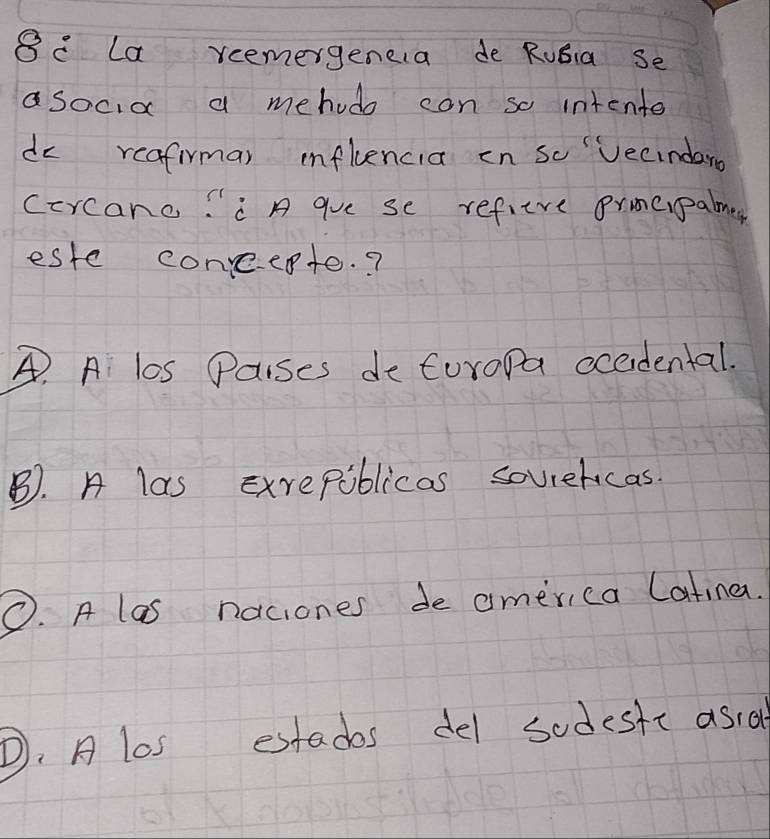 8¿ La reemergencia de Rusia se
asocia a mehudo con su intento
de reafirmar influencia en su "Vecindario
Cercano". ¿A que se refiere principalment
este concepto.?
A). A los Paises de Europa occidental.
B). A las Exrepúblicas sovieticas.
C). A las naciones de américa Latina.
D). A los estados del sudeste asiat